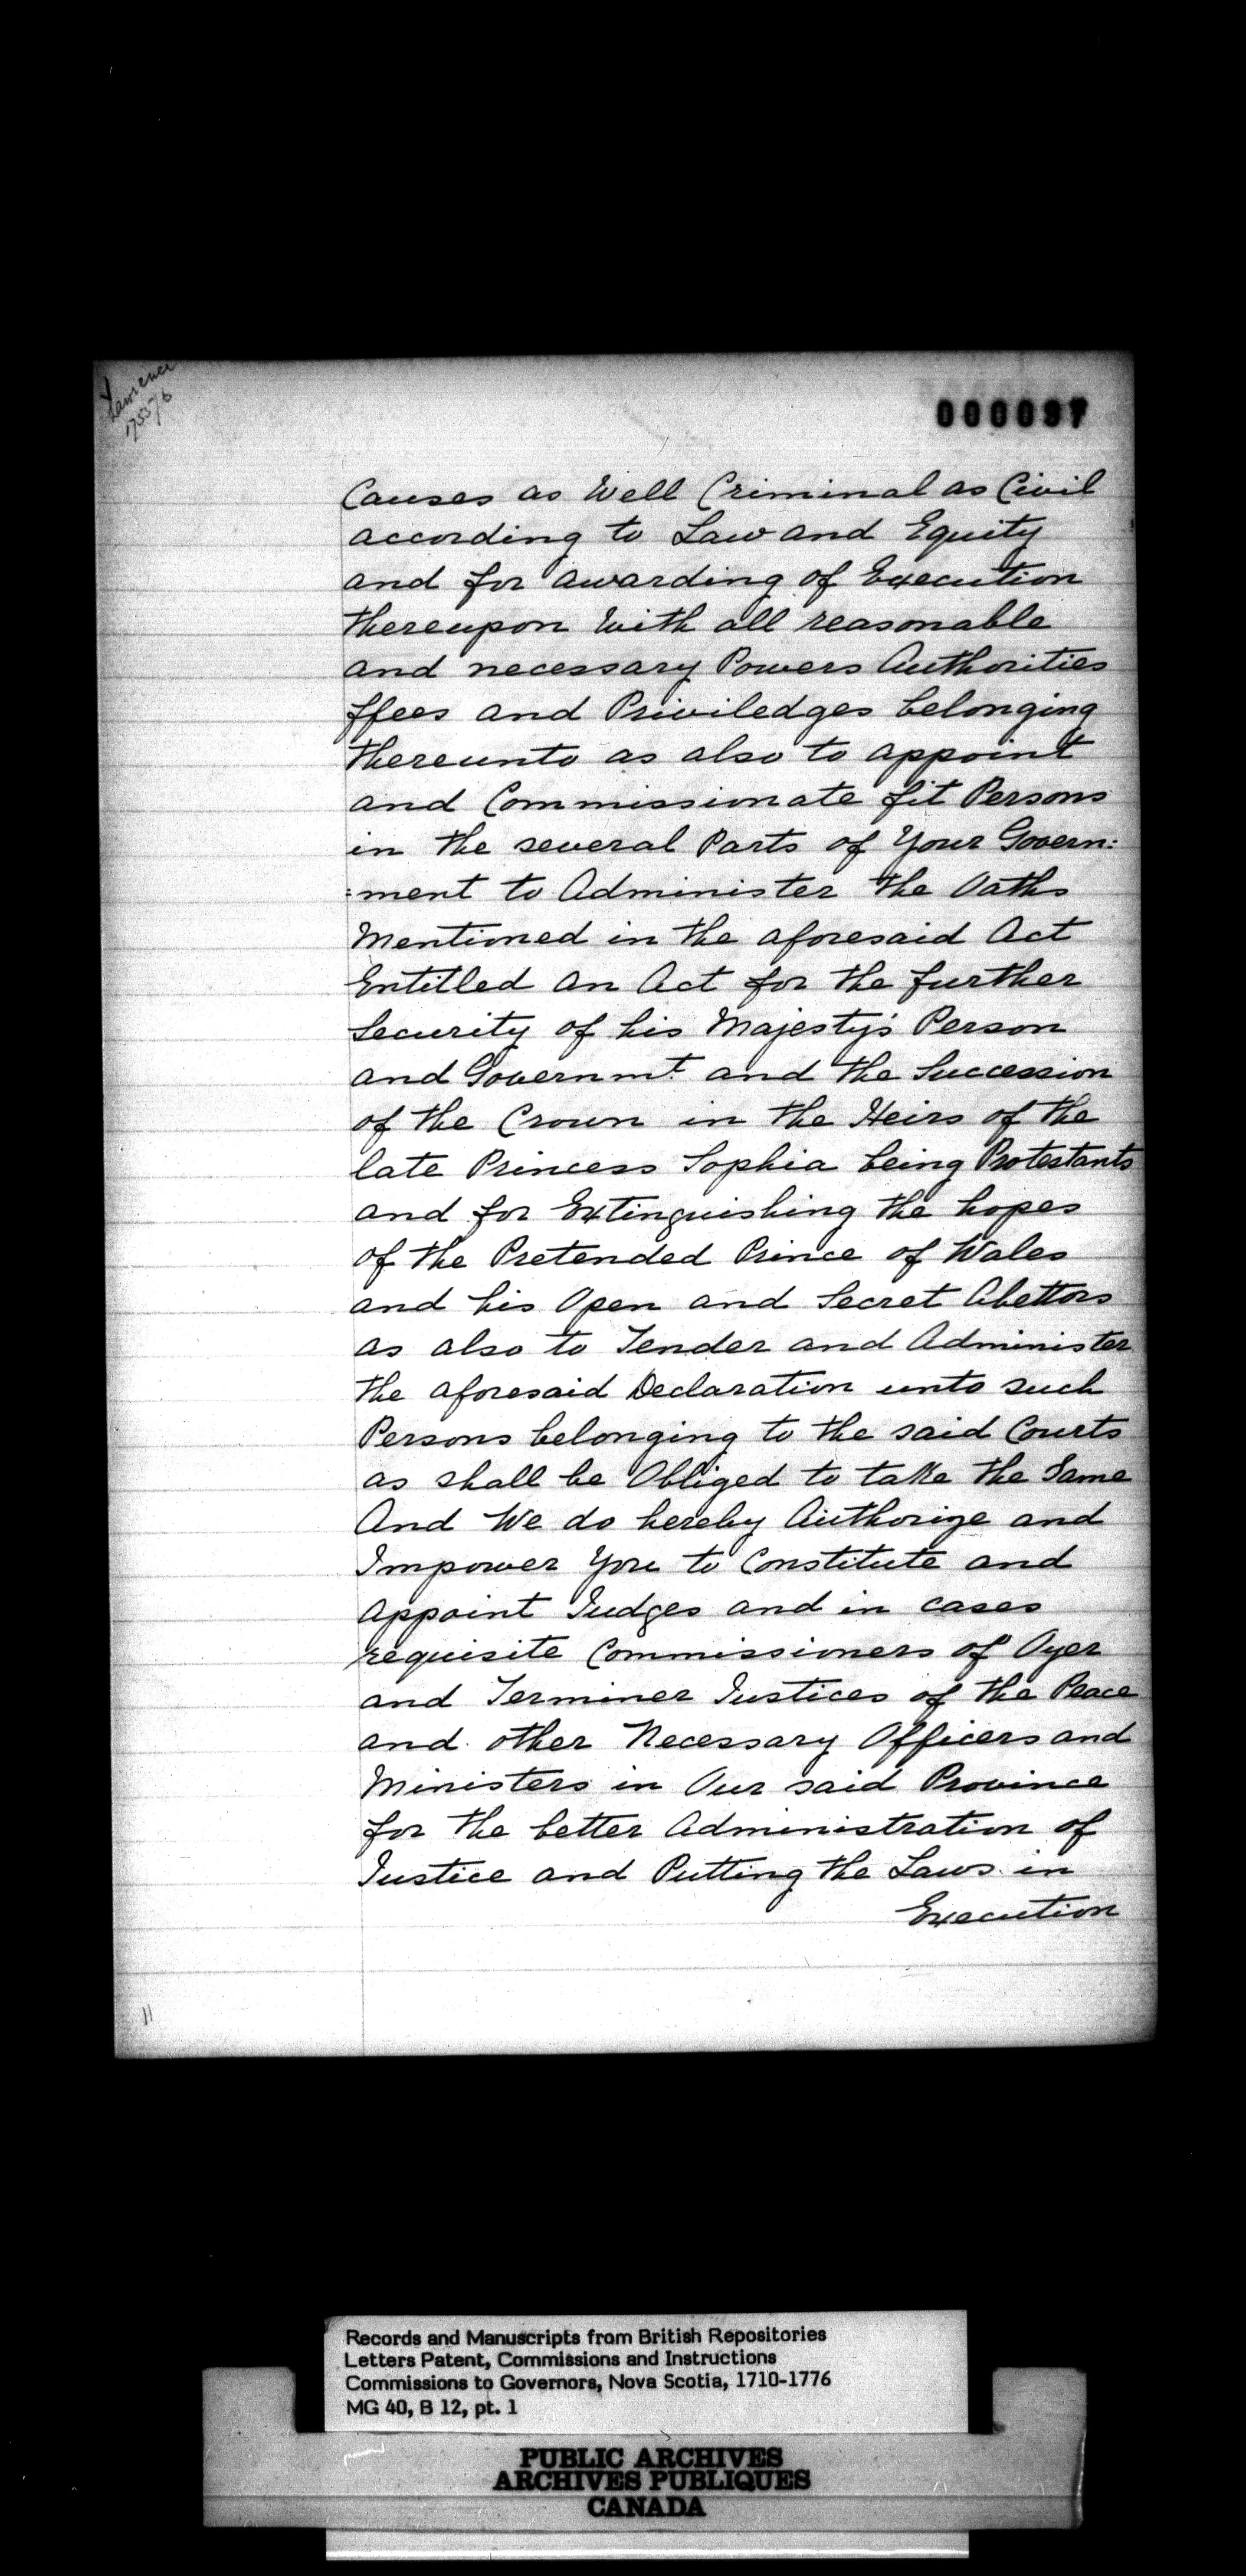 Lawrence
1755/6
000097
Causes as Well Criminal as Civil
according to Law and Equity
and for awarding of Execution
thereupon With all reasonable
and necessary Powers Authorities
ffees and Priviledges belonging
thereunto as also to appoint
and Commissionate fit Persons
in the several Parts of Your Govern:
:ment to Administer the Oaths
Mentioned in the aforesaid Act
Entitled an Act for the further
Security of his Majesty's Person
and Governmt. and the Succession
of the Crown in the Heirs of the
late Princess Sophia being Protestants
and for Extinguishing the hopes
of the Pretended Prince of Wales
and his Open and Secret Abettors
as also to Tender and Administer
the aforesaid Declaration unto such
Persons belonging to the said Courts
as shall be Obliged to take the Same
And We do hereby Authorize and
Impower You to Constitute and
Appoint Judges and in cases
requisite Commissioners of Oyer
and Terminer Justices of the Peace
and other Necessary Officers and
Ministers in Our said Province
for the better Administration of
Justice and Putting the Laws in
Execution
11
Records and Manuscripts from British Repositories
Letters Patent, Commissions and Instructions
Commissions to Governors, Nova Scotia, 1710-1776
MG 40, B 12, pt. 1
PUBLIC ARCHIVES
ARCHIVES PUBLIQUES
CANADA